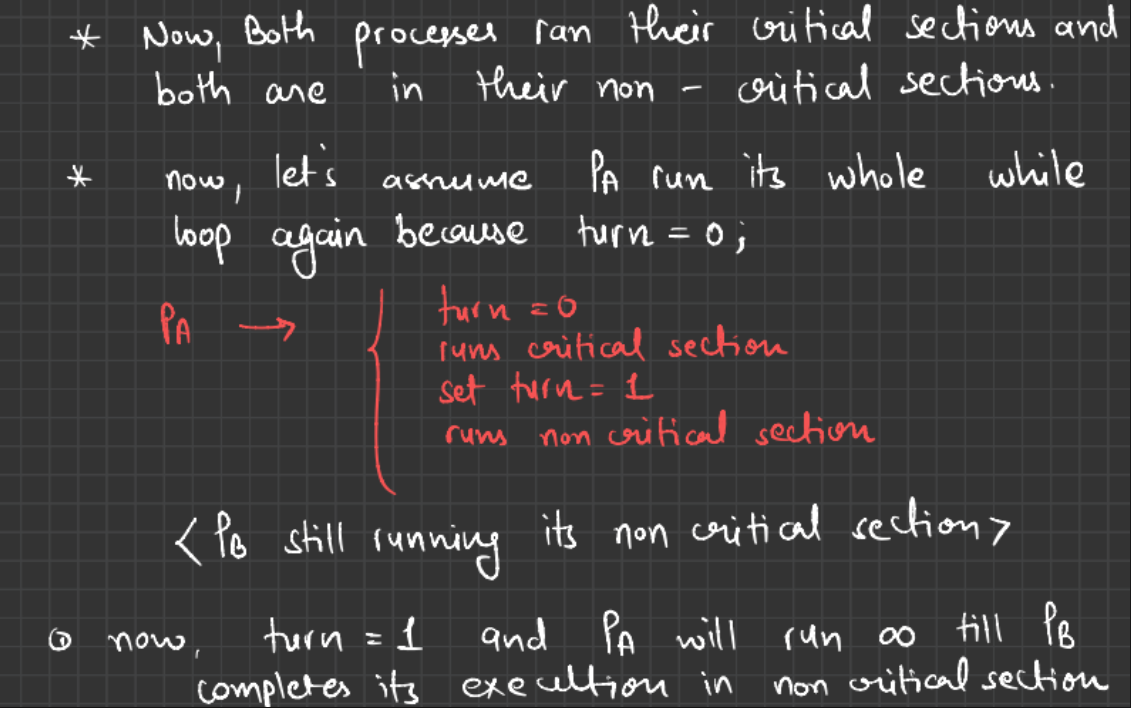 * Now, Both processes ran their critical sections and
both are in their non - critical sections.
* now, let's assume PA run its whole while
loop again because turn = 0;
PA → { turn = 0
runs critical section
set turn = 1
runs non critical section
< PB still running its non critical section >
⊙ now, turn = 1 and PA will run ∞ till PB
completes its execution in non critical section